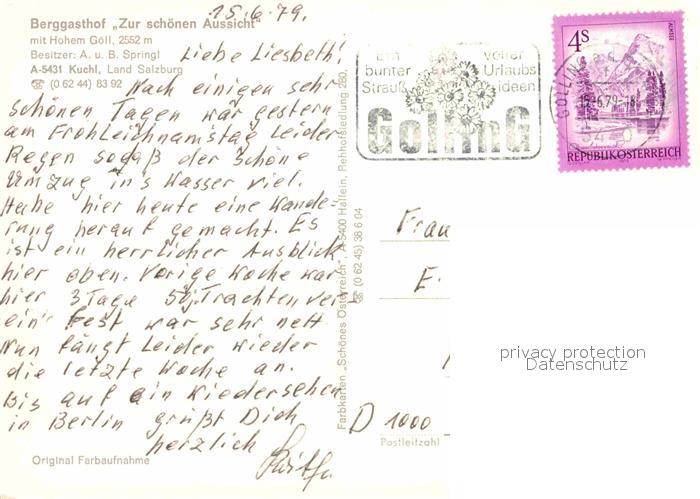 15.6.79.
Berggasthof „Zur schönen Aussicht"
mit Hohem Göll, 2552 m
Besitzer: A. u. B. Springl
A-5431 Kuchl, Land Salzburg
☎ (0 62 44) 83 92
Liebe Liesbeth!
Nach einigen sehr
schönen Tagen war gestern
am Frohleichnamstag Leider
Regen sogaß der Schöne
Umzug in's Wasser viel.
Habe hier heute eine Wande-
rung herauf gemacht. Es
ist ein herrlicher Ausblick
hier oben. Vorige Woche war
hier 3 Tage 50j. Trachten ver-
ein's Fest war sehr nett
Nun fängt Leider wieder
die letzte Woche an.
Bis auf ein Wiedersehen
in Berlin grüßt Dich
herzlich
Original Farbaufnahme
Farbkarten „Schönes Österreich", A-5400 Hallein, Rehhofsiedlung 280,
☎ (0 62 45) 38 6 04
Ein voller
bunter Urlaubs
Strauß ideen
GollinG
4 S
REPUBLIK ÖSTERREICH
GOLLING
15.-6.79-18
Frau
E.
D 1000
Postleitzahl
privacy protection
Datenschutz